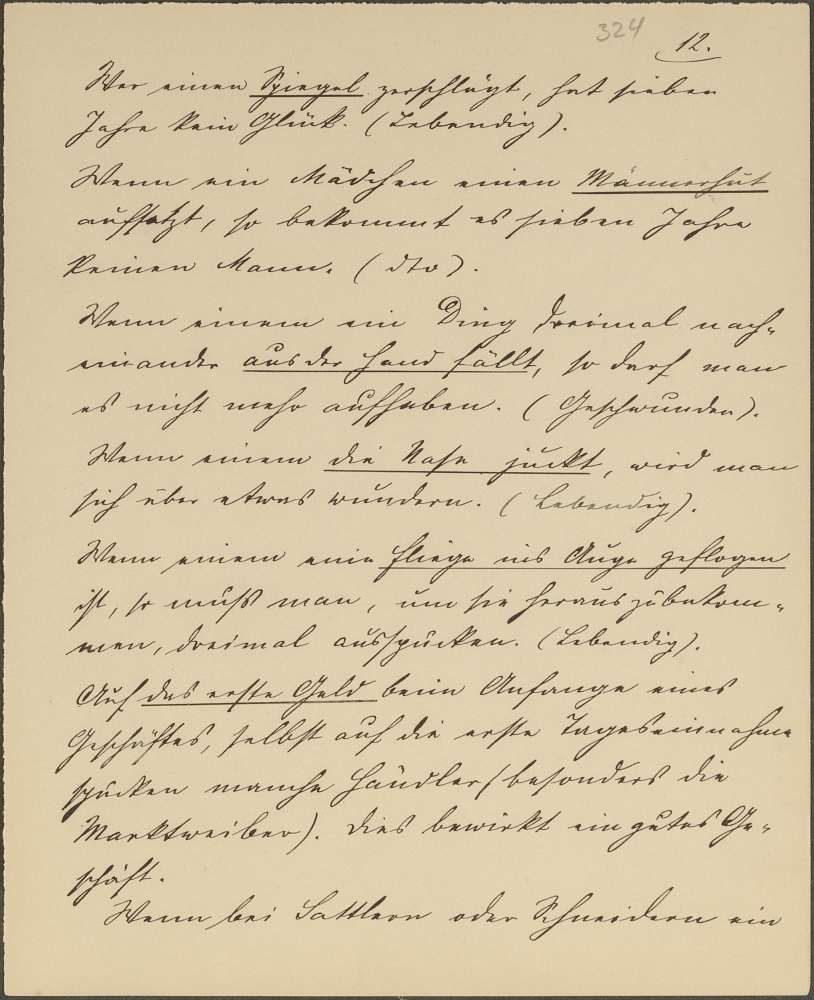 324
12.
Wer einen Spiegel zerschlägt, hat sieben
Jahre kein Glück. (Lebendig).
Wenn ein Mädchen einen Männerhut
aufsetzt, so bekommt es sieben Jahre
keinen Mann. (dto).
Wenn einem ein Ding dreimal nach-
einander aus der Hand fällt, so darf man
es nicht mehr aufheben. (Geschwunden).
Wenn einem die Nase juckt, wird man
sich über etwas wundern. (Lebendig).
Wenn einem eine Fliege ins Auge geflogen
ist, so muß man, um sie herauszubekom-
men, dreimal ausspucken. (Lebendig).
Auf das erste Geld beim Anfange eines
Geschäftes, selbst auf die erste Tageseinnahme
spucken manche Händler (besonders die
Marktweiber). Dies bewirkt ein gutes Ge-
schäft.
Wenn bei Sattlern oder Schneidern ein